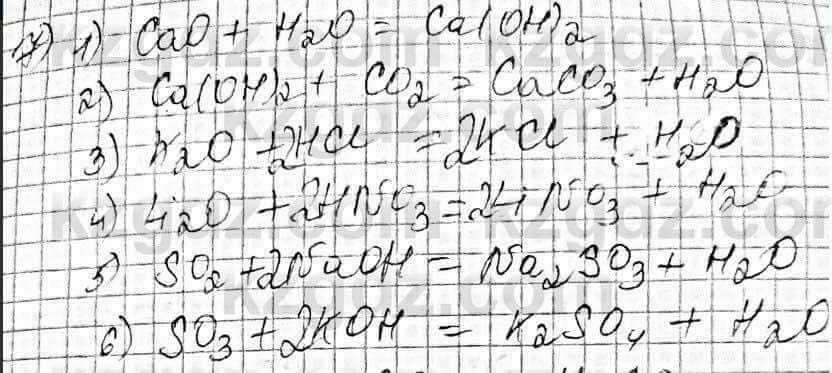 7) 1) CaO + H2O = Ca(OH)2
2) Ca(OH)2 + CO2 = CaCO3 + H2O
3) K2O + 2HCl = 2KCl + H2O
4) Li2O + 2HNO3 = 2LiNO3 + H2O
5) SO2 + 2NaOH = Na2SO3 + H2O
6) SO3 + 2KOH = K2SO4 + H2O